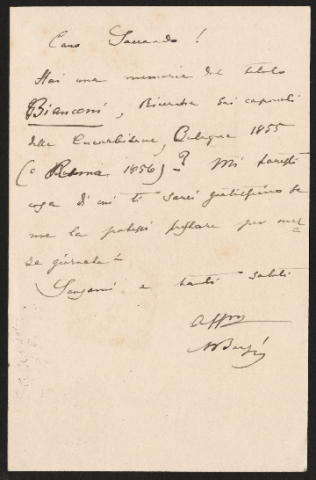 Caro Saccardo!
Hai una memoria del titolo
Bianconi, Ricerche sui capreoli
delle Cucurbitacee, Bologna 1855
(o Roma 1856)? Mi faresti
cosa di cui ti sarei gratissimo se
me la potessi prestare per mez
za giornata.
Scusami e tanti saluti
Affmo